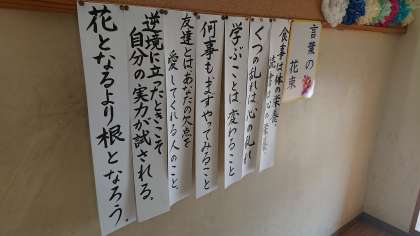 言葉の
花束
食事は体の栄養、
読書は心の栄養
くつの乱れは心の乱れ
学ぶことは変わること
何事もまずやってみること
友達とはあなたの欠点を
愛してくれる人のこと。
逆境に立ったときこそ
自分の実力が試される。
花となるより根となろう。